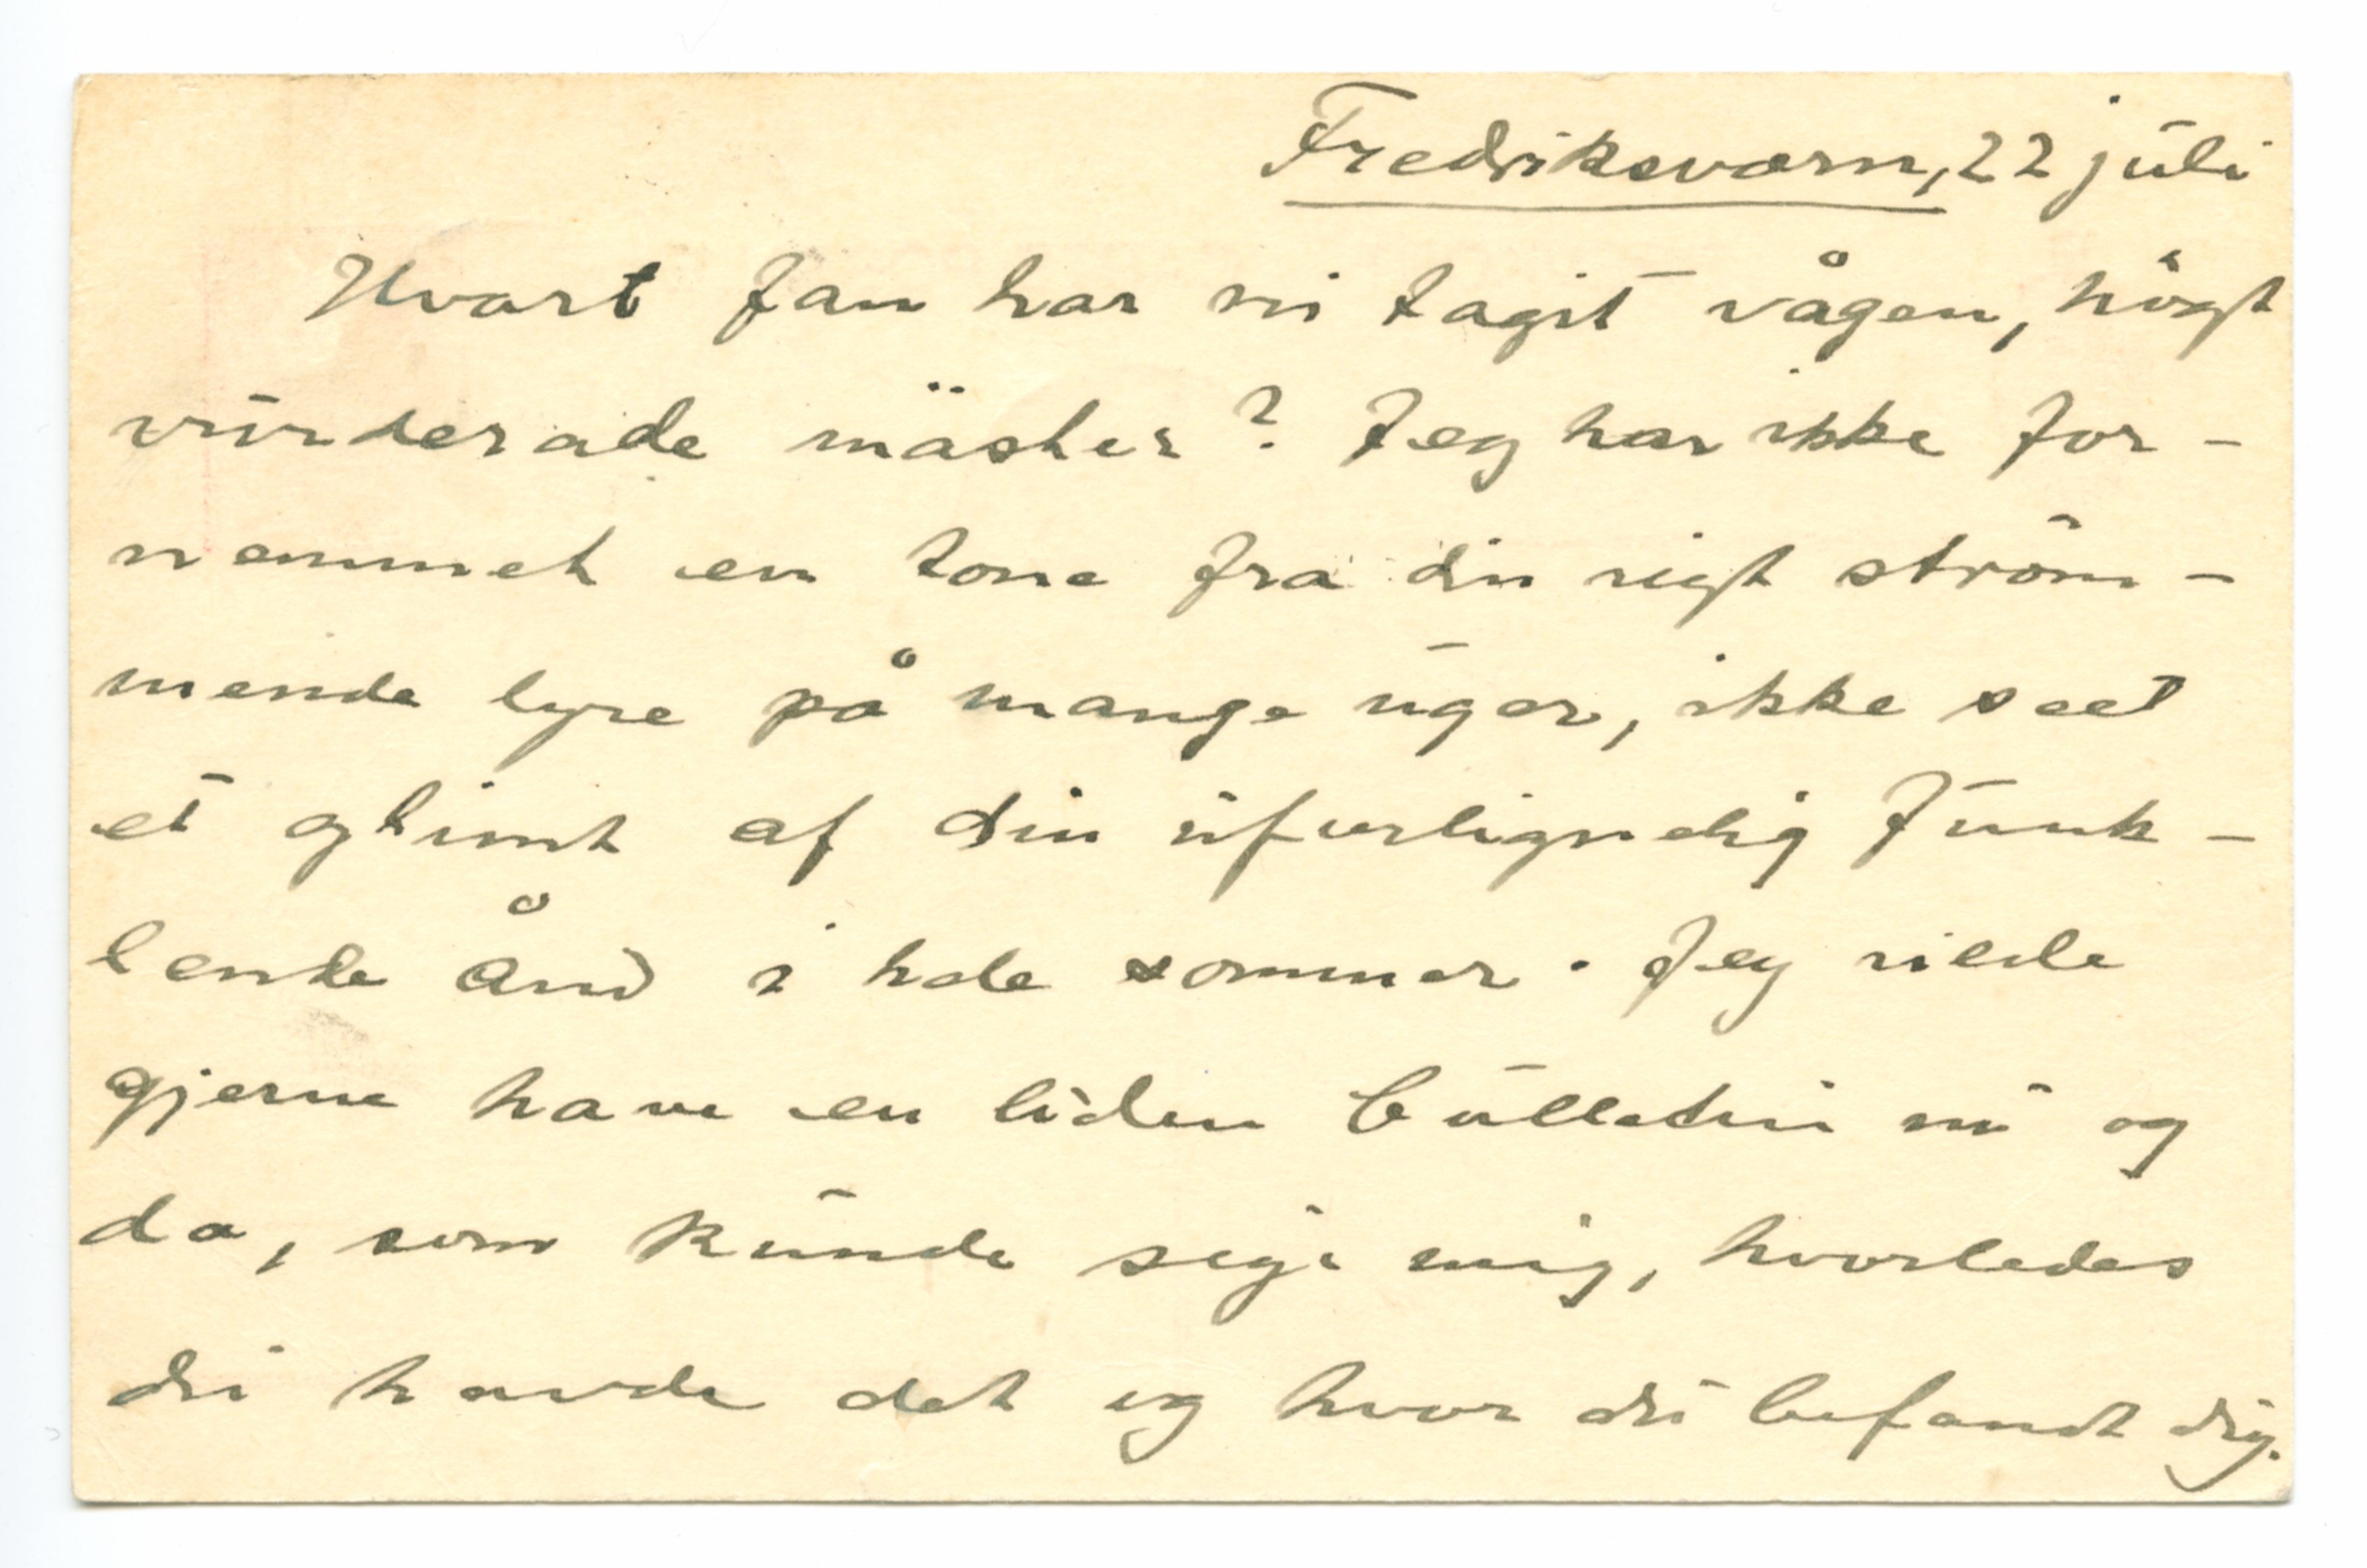 Fredriksværn, 22 juli
Hvart fan har ni tagit vägen, högt
vörderade mäster? Jeg har ikke for-
nemmet en tone fra din rigt ström-
mende lyre på mange uger, ikke seet
et glimt af din uforlignelig funk-
lende ånd i hele sommer. Jeg vilde
gjerne have en liden bulletin nu og
da, som kunde sige mig, hvorledes
du havde det og hvor du befandt dig.